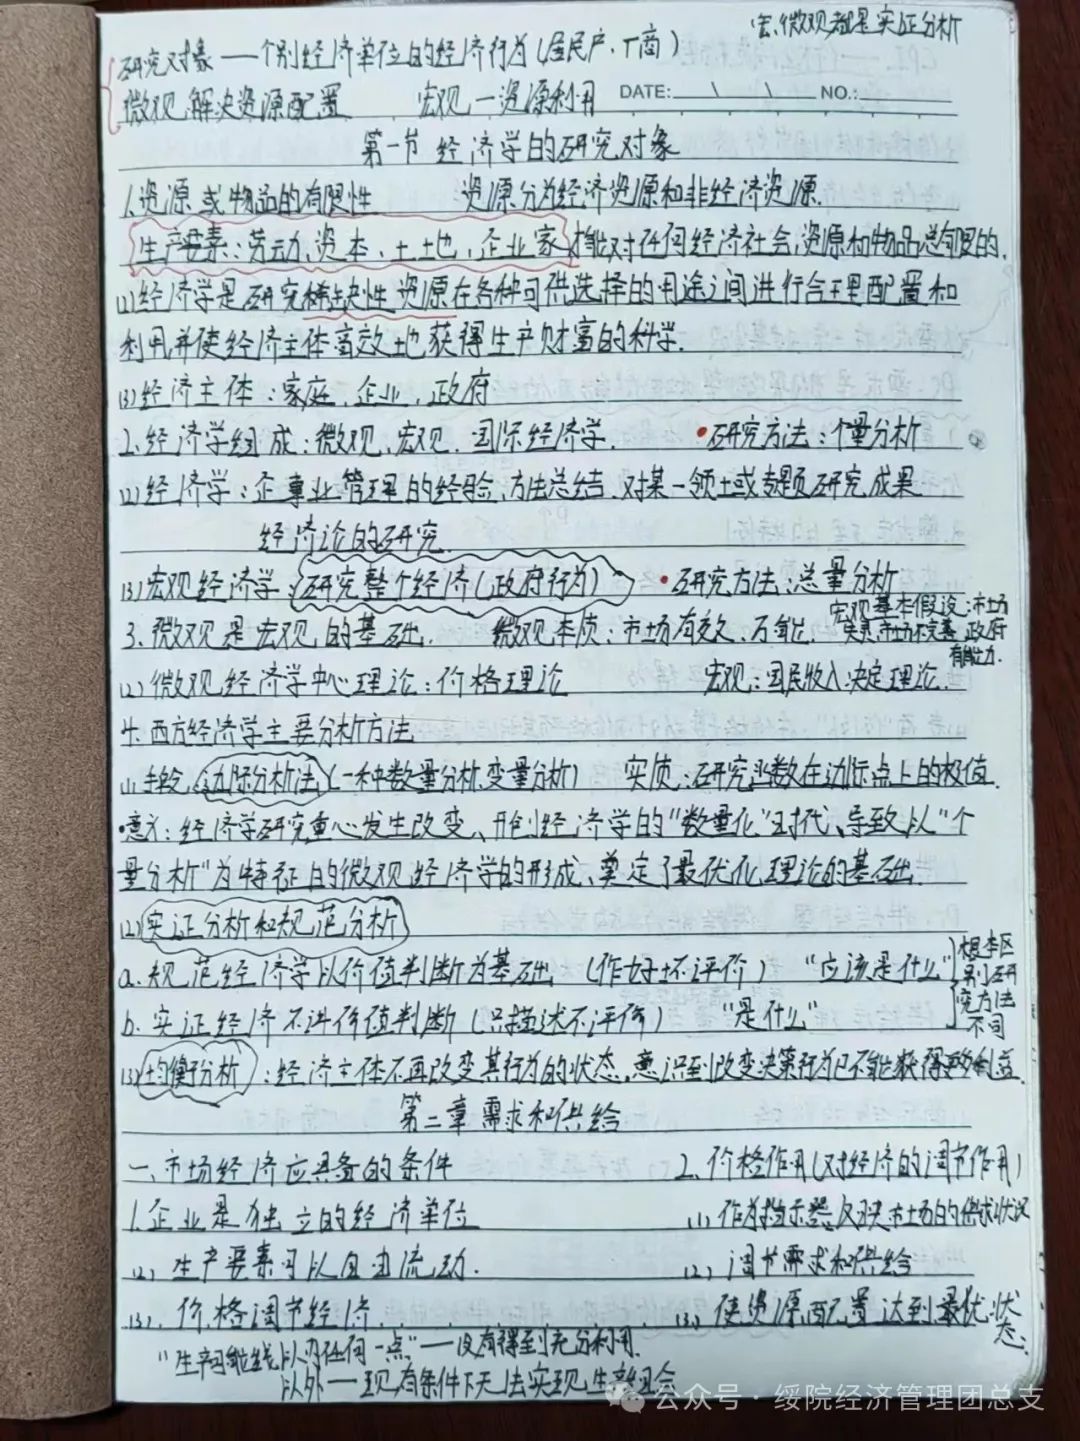 宏、微观都是实证分析
研究对象——个别经济单位的经济行为(居民户、厂商)
微观 解决资源配置 宏观—资源利用 DATE: \ \ \ NO.:
第一节 经济学的研究对象
1.资源或物品的有限性 资源分为经济资源和非经济资源.
生产要素:劳动、资本、土地、企业家 对任何经济社会,资源和物品总有限的.
(1)经济学是研究稀缺性资源在各种可供选择的用途之间进行合理配置和
利用并使经济主体高效地获得生产财富的科学.
(3)经济主体:家庭、企业、政府
2.经济学组成:微观、宏观、国际经济学. •研究方法:个量分析
(2)经济学:企事业管理的经验、方法总结.对某一领土或专题研究成果
经济论的研究
(3)宏观经济学:研究整个经济(政府行为) •研究方法:总量分析
3.微观是宏观的基础. 微观本质:市场有效、万能.
宏观基本假设:市场
失灵,市场不完善,政府
有能力.
(2)微观经济学中心理论:价格理论 宏观:国民收入决定理论.
4.西方经济学主要分析方法
(1)手段:边际分析法(一种数量分析,变量分析) 实质:研究函数在边际点上的极值.
•意义:经济学研究重心发生改变、开创经济学的"数量化"时代、导致以"个
量分析"为特征的微观经济学的形成、奠定了最优化理论的基础.
(2)实证分析和规范分析
a.规范经济学以价值判断为基础 (作好坏评价) "应该是什么"
b.实证经济不进价值判断(只描述不评价) "是什么"
根本区
别研
究方法
不同
(3)均衡分析:经济主体不再改变其行为的状态,意识到改变决策行为已不能获得更多利益.
第二章 需求和供给
一、市场经济应具备的条件 2.价格作用(对经济的调节作用)
1.企业是独立的经济单位 (1)作为指示器反映市场的供求状况
(2)生产要素可以自由流动. (2)调节需求和供给
(3)价格调节经济 (3)使资源配置达到最优状态.
"生产可能线以内任何一点"——没有得到充分利用.
以外—现有条件下无法实现生产组合
公众号 · 绥院经济管理团总支